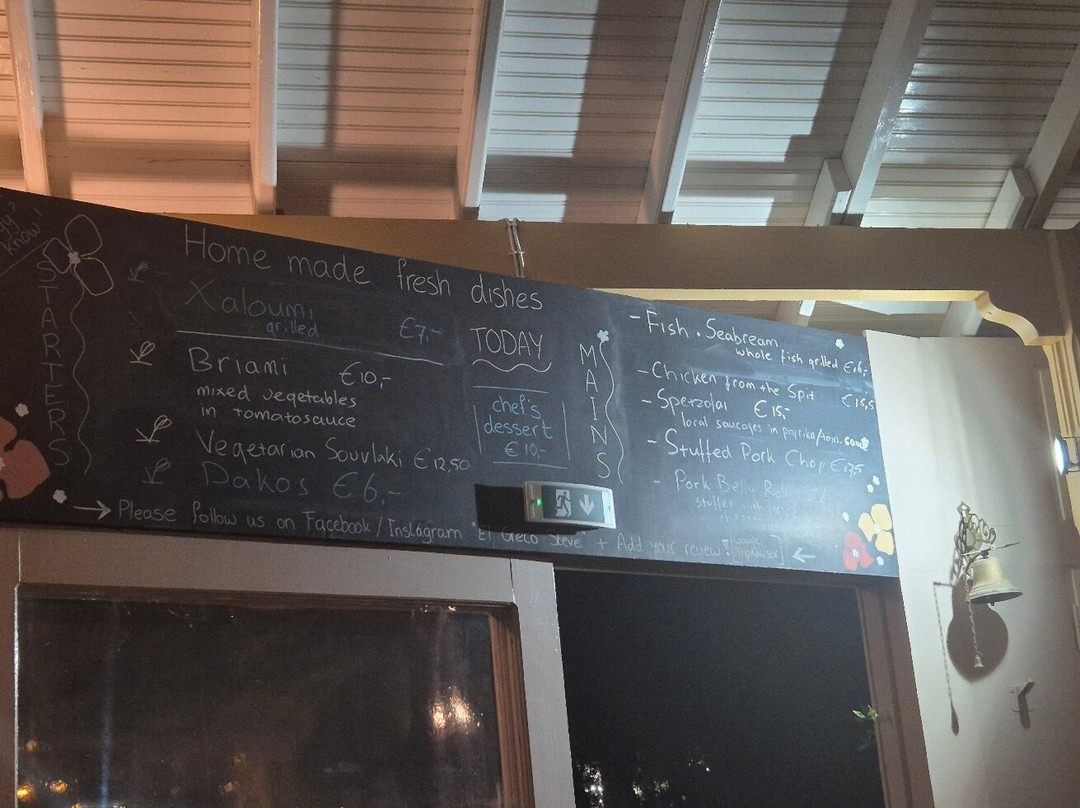 know!
STARTERS
Home made fresh dishes
Xaloumi
grilled €7,-
Briami €10,-
mixed vegetables
in tomatosauce
Vegetarian Souvlaki €12,50
Dakos €6,-
TODAY
chef's
dessert
€10,-
MAINS
- Fish . Seabream
whole fish grilled
- Chicken from the Spit €15,5
- Spetzofai €15,-
local saucages in paprika/tom. sauce
- Stuffed Pork Chop €17,5
- Pork Belly
stuffed with
→ Please follow us on Facebook / Instagram "El Greco Steve" + Add your review! [Google
Tripadvisor] ←